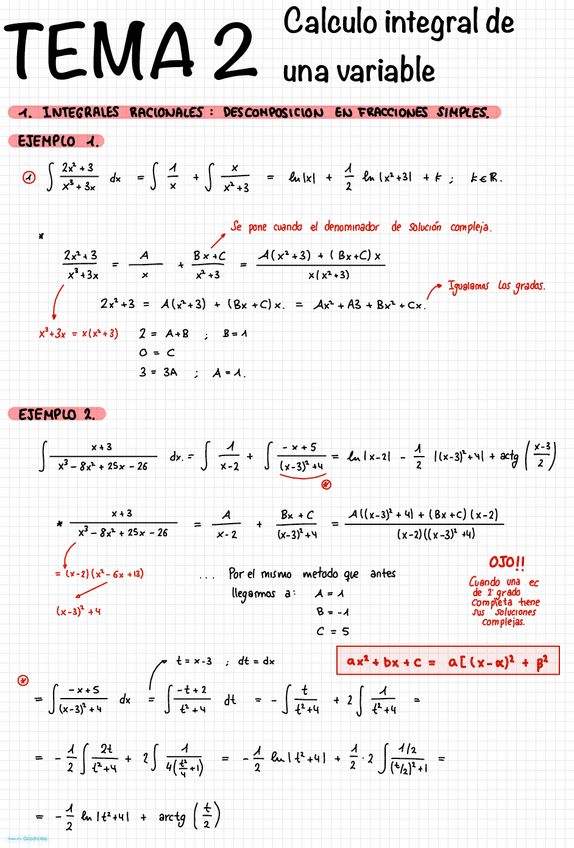 TEMA 2
Calculo integral de
una variable
1. INTEGRALES RACIONALES: DESCOMPOSICION EN FRACCIONES SIMPLES.
EJEMPLO 1.
① ∫ (2x² + 3)/(x³ + 3x) dx = ∫ 1/x + ∫ x/(x² + 3) = ln|x| + 1/2 ln|x²+3| + k ; k∈ℝ.
Se pone cuando el denominador de solución compleja.
* (2x² + 3)/(x³+3x) = A/x + (Bx+C)/(x²+3) = (A(x²+3) + (Bx+C)x)/(x(x²+3))
Igualamos los grados.
2x²+3 = A(x²+3) + (Bx+C)x. = Ax² + A3 + Bx² + Cx.
x³+3x = x(x²+3)
2 = A+B ; B=1
0 = C
3 = 3A ; A=1.
EJEMPLO 2.
∫ (x+3)/(x³ - 8x² + 25x - 26) dx. = ∫ 1/(x-2) + ∫ (-x+5)/((x-3)²+4) = ln|x-2| - 1/2 |(x-3)²+4| + actg((x-3)/2)
⊛
* (x+3)/(x³ - 8x² + 25x - 26) = A/(x-2) + (Bx + C)/((x-3)²+4) = (A((x-3)² + 4) + (Bx+C)(x-2))/((x-2)((x-3)² +4))
= (x-2)(x² - 6x + 13)
(x-3)² + 4
... Por el mismo metodo que antes
llegamos a: A = 1
B = -1
C = 5
OJO!!
Cuando una ec
de 2º grado
completa tiene
sus soluciones
complejas.
ax² + bx + c = a[(x-α)² + β²
t = x-3 ; dt = dx
⊛ = ∫ (-x+5)/((x-3)² + 4) dx = ∫ (-t+2)/(t²+4) dt = - ∫ t/(t²+4) + 2∫ 1/(t²+4) =
= - 1/2 ∫ 2t/(t²+4) + 2∫ 1/(4(t²/4+1)) = - 1/2 ln|t²+4| + 1/2 · 2 ∫ (1/2)/((t/2)²+1) =
= - 1/2 ln|t²+4| + arctg(t/2)